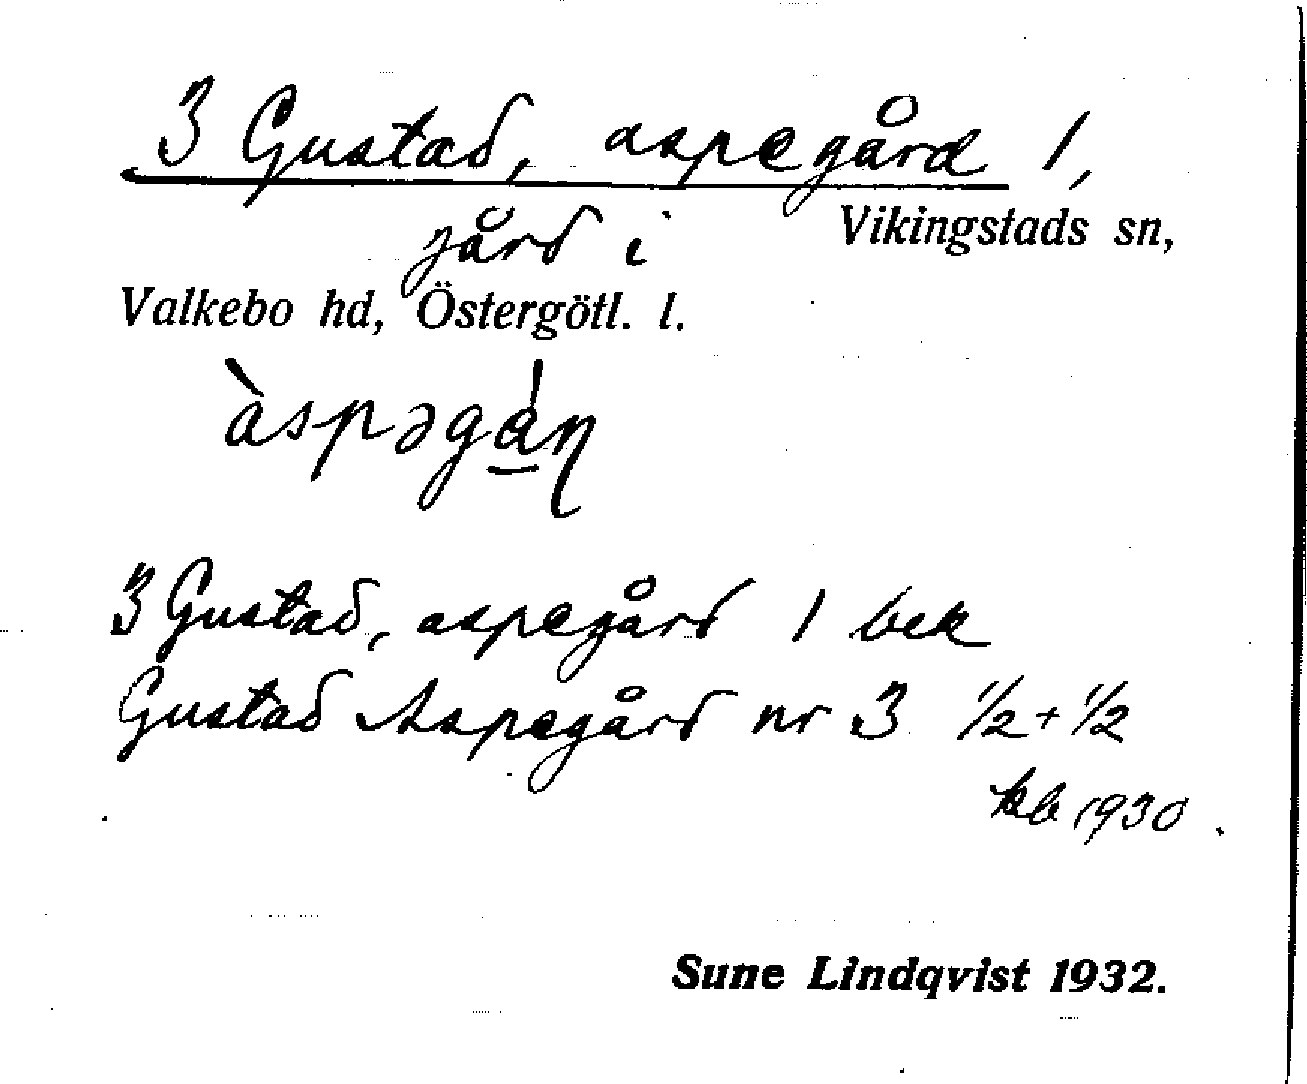 3 Gustad, aspegård 1,
gård i Vikingstads sn,
Valkebo hd, Östergötl. l.
àspəgá̲ꞃ
3 Gustad, aspegård 1 bek
Gustad Aspegård nr 3 1/2 + 1/2
kb 1930.
Sune Lindqvist 1932.